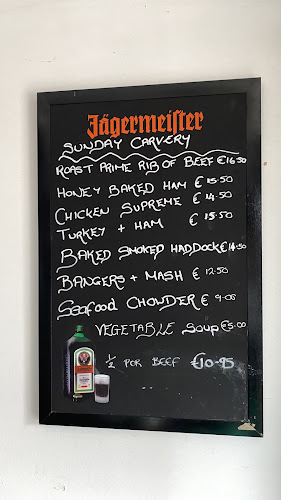 Jägermeister
SUNDAY CARVERY
ROAST PRIME RIB OF BEEF €16.50
HONEY BAKED HAM € 15.50
CHICKEN SUPREME € 14.50
TURKEY + HAM € 15.50
BAKED SMOKED HADDOCK €14.50
BANGERS + MASH € 12.50
SEAFOOD CHOWDER € 9.00
VEGETABLE SOUP €5.00
1/2 POR BEEF €10.95